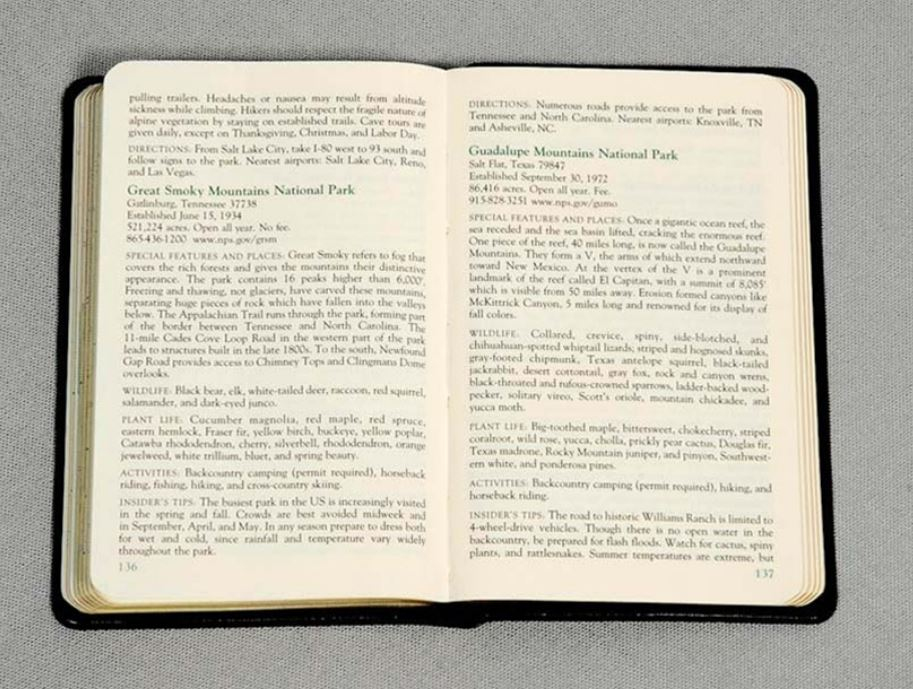 pulling trailers. Headaches or nausea may result from altitude
sickness while climbing. Hikers should respect the fragile nature of
alpine vegetation by staying on established trails. Cave tours are
given daily, except on Thanksgiving, Christmas, and Labor Day.
DIRECTIONS: From Salt Lake City, take I-80 west to 93 south and
follow signs to the park. Nearest airports: Salt Lake City, Reno,
and Las Vegas.
Great Smoky Mountains National Park
Gatlinburg, Tennessee 37738
Established June 15, 1934
521,224 acres. Open all year. No fee.
865-436-1200 www.nps.gov/grsm
SPECIAL FEATURES AND PLACES: Great Smoky refers to fog that
covers the rich forests and gives the mountains their distinctive
appearance. The park contains 16 peaks higher than 6,000'.
Freezing and thawing, not glaciers, have carved these mountains,
separating huge pieces of rock which have fallen into the valleys
below. The Appalachian Trail runs through the park, forming part
of the border between Tennessee and North Carolina. The
11-mile Cades Cove Loop Road in the western part of the park
leads to structures built in the late 1800s. To the south, Newfound
Gap Road provides access to Chimney Tops and Clingmans Dome
overlooks.
WILDLIFE: Black bear, elk, white-tailed deer, raccoon, red squirrel,
salamander, and dark-eyed junco.
PLANT LIFE: Cucumber magnolia, red maple, red spruce,
eastern hemlock, Fraser fir, yellow birch, buckeye, yellow poplar,
Catawba rhododendron, cherry, silverbell, rhododendron, orange
jewelweed, white trillium, bluet, and spring beauty.
ACTIVITIES: Backcountry camping (permit required), horseback
riding, fishing, hiking, and cross-country skiing.
INSIDER'S TIPS: The busiest park in the US is increasingly visited
in the spring and fall. Crowds are best avoided midweek and
in September, April, and May. In any season prepare to dress both
for wet and cold, since rainfall and temperature vary widely
throughout the park.
136
DIRECTIONS: Numerous roads provide access to the park from
Tennessee and North Carolina. Nearest airports: Knoxville, TN
and Asheville, NC.
Guadalupe Mountains National Park
Salt Flat, Texas 79847
Established September 30, 1972
86,416 acres. Open all year. Fee.
915-828-3251 www.nps.gov/gumo
SPECIAL FEATURES AND PLACES: Once a gigantic ocean reef, the
sea receded and the sea basin lifted, cracking the enormous reef.
One piece of the reef, 40 miles long, is now called the Guadalupe
Mountains. They form a V, the arms of which extend northward
toward New Mexico. At the vertex of the V is a prominent
landmark of the reef called El Capitan, with a summit of 8,085'
which is visible from 50 miles away. Erosion formed canyons like
McKittrick Canyon, 5 miles long and renowned for its display of
fall colors.
WILDLIFE: Collared, crevice, spiny, side-blotched, and
chihuahuan-spotted whiptail lizards; striped and hognosed skunks,
gray-footed chipmunk, Texas antelope squirrel, black-tailed
jackrabbit, desert cottontail, gray fox, rock and canyon wrens,
black-throated and rufous-crowned sparrows, ladder-backed wood-
pecker, solitary vireo, Scott's oriole, mountain chickadee, and
yucca moth.
PLANT LIFE: Big-toothed maple, bittersweet, chokecherry, striped
coralroot, wild rose, yucca, cholla, prickly pear cactus, Douglas fir,
Texas madrone, Rocky Mountain juniper, and pinyon, Southwest-
ern white, and ponderosa pines.
ACTIVITIES: Backcountry camping (permit required), hiking, and
horseback riding.
INSIDER'S TIPS: The road to historic Williams Ranch is limited to
4-wheel-drive vehicles. Though there is no open water in the
backcountry, be prepared for flash floods. Watch for cactus, spiny
plants, and rattlesnakes. Summer temperatures are extreme, but
137